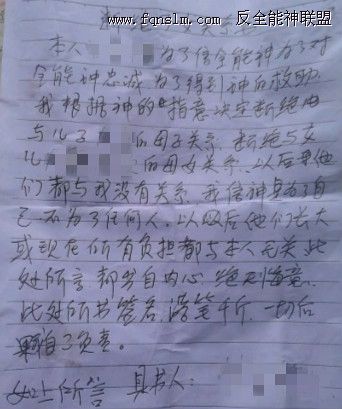 www.fqnslm.com 反全能神联盟
本人 为了信全能神为了对
全能神忠诚为了得到神的救助
我根据神的旨意决定断绝
与儿子 的母子关系.断绝与女
儿 的母女关系.以后
们都与我没有关系.我信神是为了自
己.不为了任何人.以后他们长大
或现在所有负担都与本人无关.此
处所言都出自内心.绝不
此处所书签名.落笔 一切后
果自己负责。
如上所言 具书人: